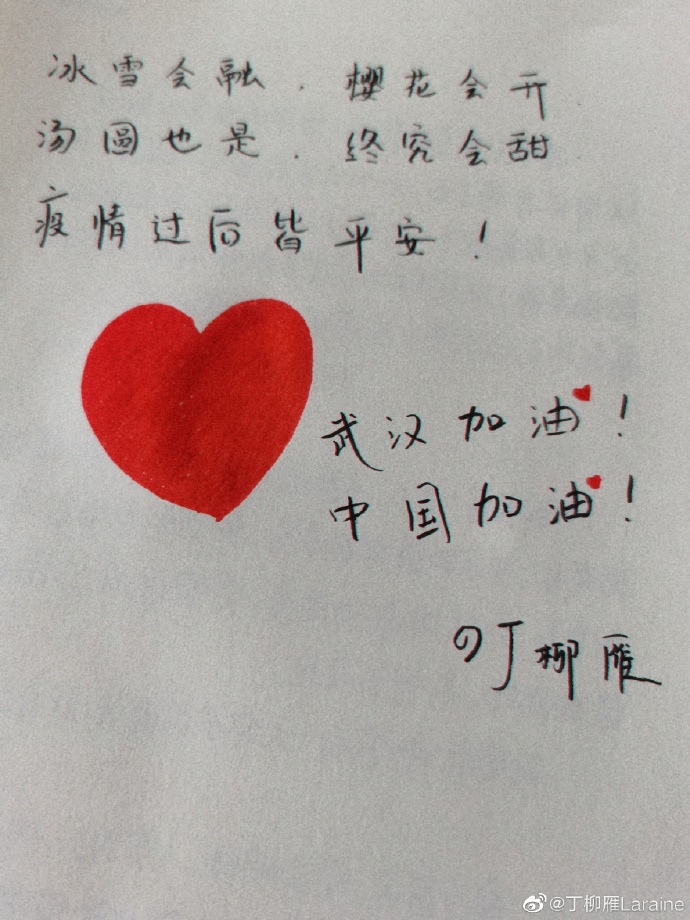 冰雪会融.樱花会开
汤圆也是.终究会甜
疫情过后皆平安！
武汉加油！
中国加油！
丁柳雁
@丁柳雁Laraine